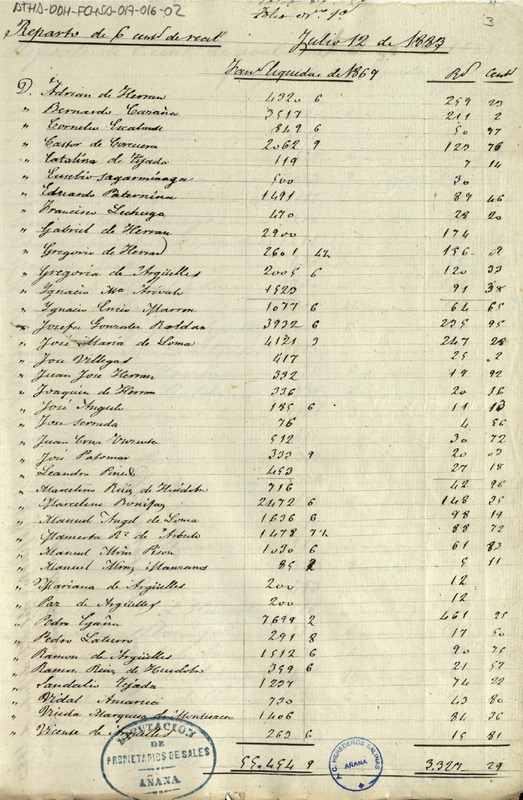 ATHA-DDH-FCHSA-017-016-02
3
Reparto de 6 cent. de real Julio 12 de 1883
Fan.s liquidas de 1869 R.s Cent.
D. Adrian de Herran 4320 6 259 23
" Bernardo Caraña 3517 211 2
" Cornelio Escalante 849 6 50 97
" Castor de Corcuera 2062 9 123 76
" Catalina de Tejada 119 7 14
" Eusebio Sagarminaga 500 30
" Eduardo Paternina 1491 89 46
" Francisco Lechuga 470 28 20
" Gabriel de Herran 2900 174
" Gregorio de Herran 2601 156
" Gregoria de Argüelles 2005 6 120 33
" Ignacio M.a Arévalo 1523 91 38
" Ignacio Enrio Marron 1077 6 64 65
" Josefa Gonzales Roldan 3932 6 235 95
" José Maria de Loma 4121 3 247 28
" Jose Villegas 417 25 2
" Juan Jose Herran 332 19 92
" Joaquin de Herran 336 20 16
" José Angulo 185 6 11 13
" Jose Serrada 76 4 56
" Juan Cruz 512 30 72
" José Palomar 333 9 20 03
" Leandro Pinedo 453 27 18
" Marcelino Ruiz de 716 42 96
" Marcelino Bonifaz 2472 6 148 35
" Manuel Angel de Loma 1636 6 98 19
" 1478 7½ 88 72
" Manuel Mrin Pison 1030 6 61 83
" Manuel Mrnz Manzanos 85 2 5 11
" Mariana de Argüelles 200 12
" Paz de Argüelles 200 12
" Pedro Egaña 7699 2 461 95
" Pedro Laturro 291 8 17 50
" Ramon de Argüelles 1512 6 90 75
" Ramon Ruiz de 359 6 21 57
" Sandalio Tejada 1237 74 22
" Vidal Amarica 730 43 80
" Viuda Marquesa de Montesacro 1406 84 36
" Vicente de Argüelles 263 6 15 81
55.454 9 3.327 29
DIPUTACION
DE
PROPIETARIOS DE SALES
AÑANA
C. HEREDEROS SALINAS
AÑANA